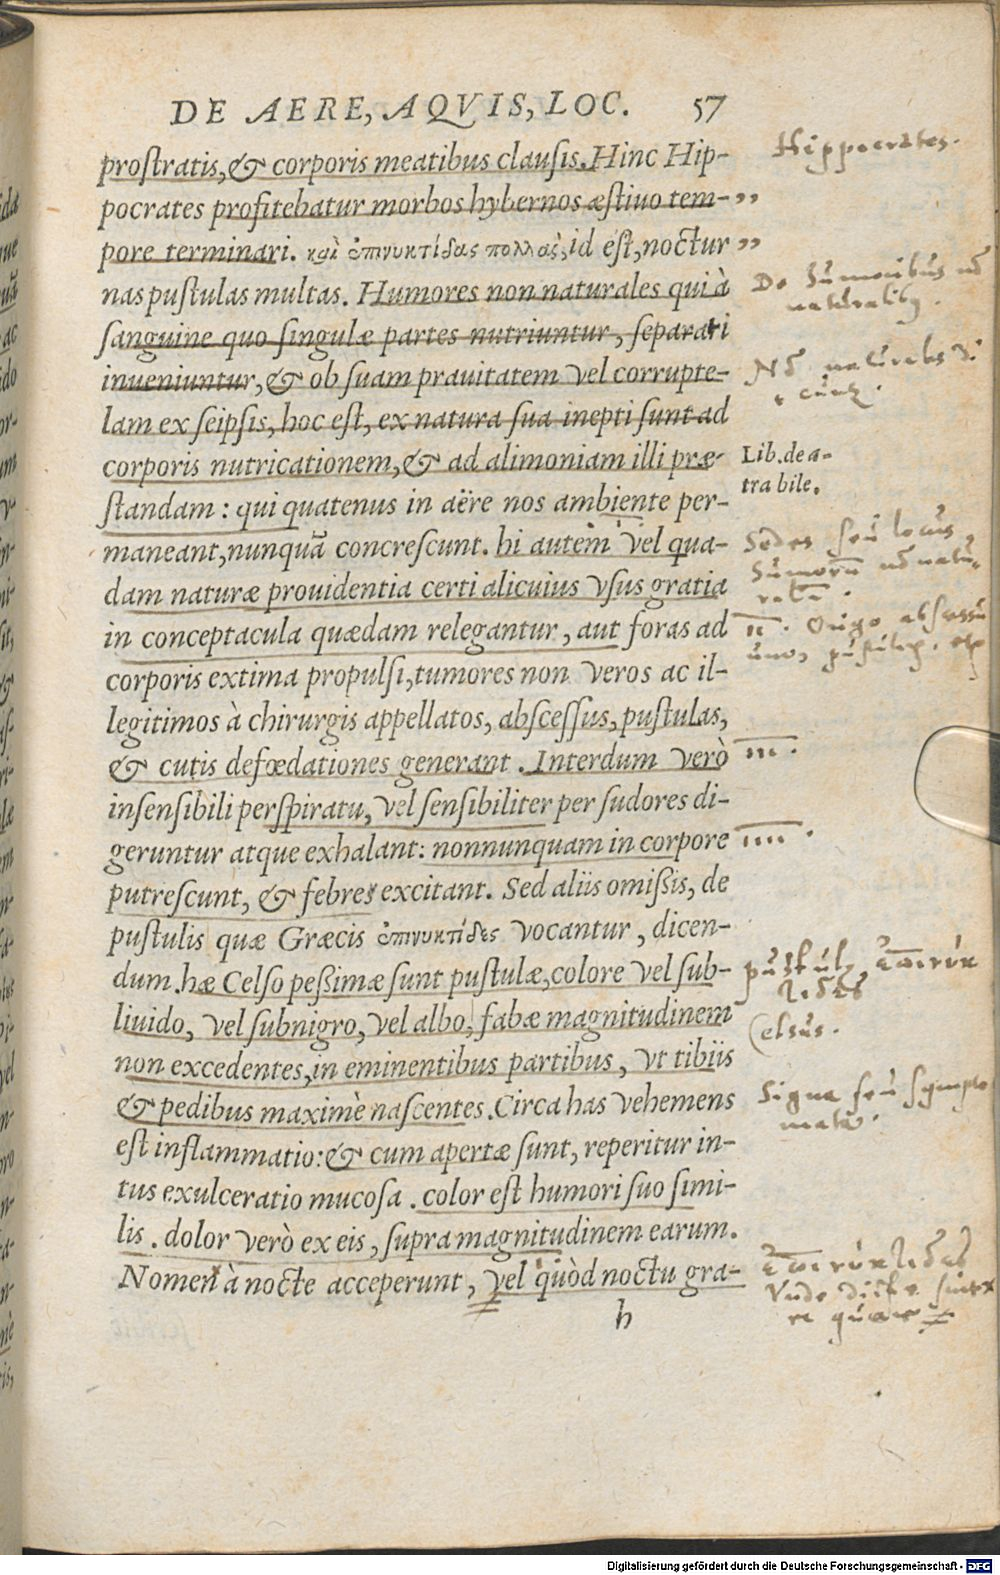 DE AERE, AQVIS, LOC. 57
prostratis, & corporis meatibus clausis. Hinc Hip-
pocrates profitebatur morbos hybernos æstiuo tem-
pore terminari. καὶ ἐπινυκτίδας πολλας, id est, noctur
nas pustulas multas. Humores non naturales qui à
sanguine quo singulæ partes nutriuntur, separati
inueniuntur, & ob suam prauitatem vel corrupte-
lam ex seipsis, hoc est, ex natura sua inepti sunt ad
corporis nutricationem, & ad alimoniam illi præ-
standam: qui quatenus in aëre nos ambiente per-
maneant, nunquā concrescunt. hi autem vel qua-
dam naturæ prouidentia certi alicuius vsus gratia
in conceptacula quædam relegantur, aut foras ad
corporis extima propulsi, tumores non veros ac il-
legitimos à chirurgis appellatos, abscessus, pustulas,
& cutis defœdationes generant. Interdum verò
insensibili perspiratu, vel sensibiliter per sudores di-
geruntur atque exhalant: nonnunquam in corpore
putrescunt, & febres excitant. Sed aliis omißis, de
pustulis quæ Græcis ἐπινυκτίδες vocantur, dicen-
dum. hæ Celso peßimæ sunt pustulæ, colore vel sub-
liuido, vel subnigro, vel albo, fabæ magnitudinem
non excedentes, in eminentibus partibus, vt tibiis
& pedibus maximè nascentes. Circa has vehemens
est inflammatio: & cum apertæ sunt, reperitur in-
tus exulceratio mucosa. color est humori suo simi-
lis. dolor verò ex eis, supra magnitudinem earum.
Nomen à nocte acceperunt, vel quòd noctu gra-
h
Hippocrates.
„
„
De Humoribus nō
naturalibꝫ.
Nō naturales
Lib. de a-
tra bile.
Sedes seu locus
Humorū nō natu-
raliū.
II. Origo abscessu
um, pustulaꝝ. etc
III.
IIII.
pustulæ ἐπινυκ
τίδες
Celsus.
Signa seu sympto
mata.
ἐπινυκτίδες
Vnde dictæ